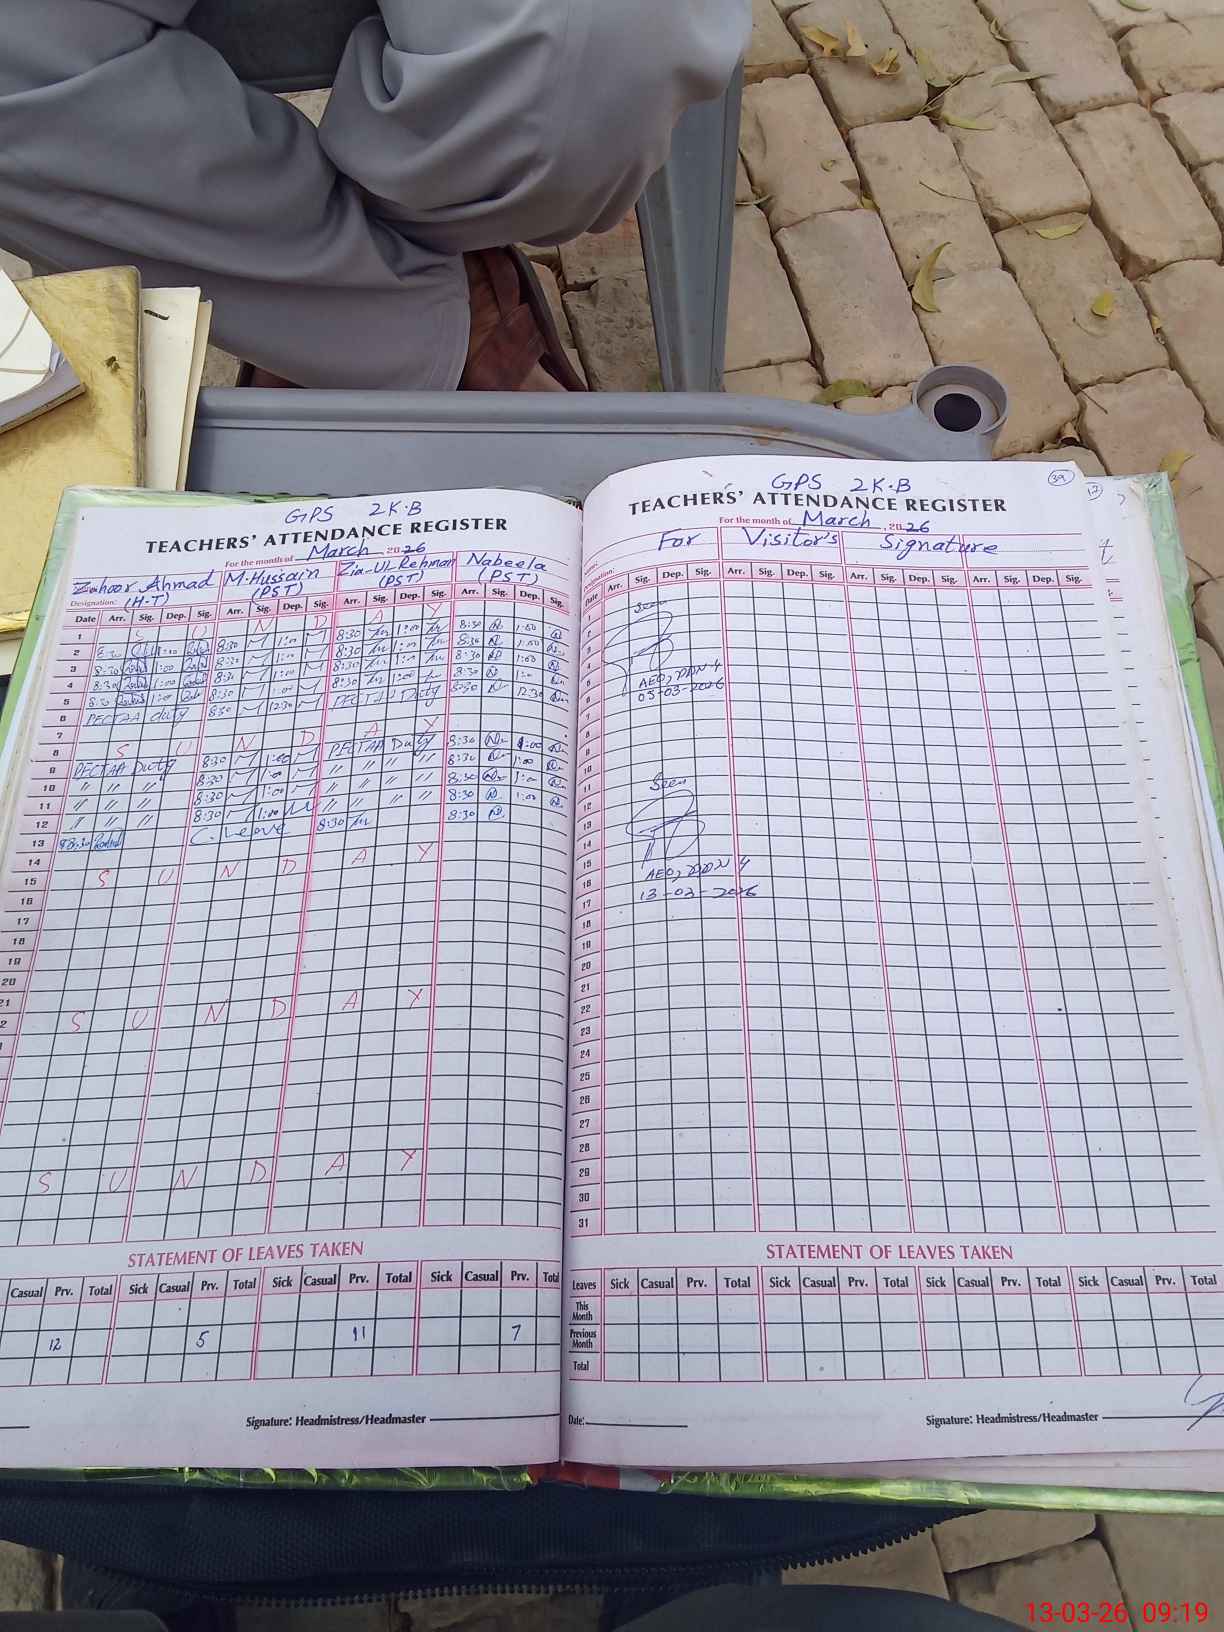 GPS 2K.B
TEACHERS' ATTENDANCE REGISTER
For the month of March, 2026
Zahoor Ahmad M.Hussain Zia-Ul-Rehman Nabeela
Designation: (H-T) (PST) (PST) (PST)
Date Arr. Sig. Dep. Sig. Arr. Sig. Dep. Sig. Arr. Sig. Dep. Sig. Arr. Sig. Dep. Sig.
1 S U N D A Y
2 8:30 1:00 8:30 M 1:00 M 8:30 1:00 8:30 1:00
3 8:30 1:00 8:30 M 1:00 M 8:30 1:00 8:30 1:00
4 8:30 1:00 8:30 M 1:00 M 8:30 1:00 8:30 1:00
5 8:30 1:00 8:30 M 1:00 M 8:30 1:00 8:30 1:00
6 PECTAA duty 8:30 M 12:30 M PECTAA Duty 8:30 12:30
7
8 S U N D A Y
9 PECTAA Duty 8:30 M 1:00 M PECTAA Duty 8:30 1:00
10 〃 〃 〃 8:30 M 1:00 M 〃 〃 〃 〃 8:30 1:00
11 〃 〃 〃 8:30 M 1:00 M 〃 〃 〃 〃 8:30 1:00
12 〃 〃 〃 8:30 M 1:00 M 〃 〃 〃 〃 8:30 1:00
13 8:30 C. Leave 8:30 8:30
14
15 S U N D A Y
16
17
18
19
20
21
2 S U N D A Y
S U N D A Y
STATEMENT OF LEAVES TAKEN
Casual Prv. Total Sick Casual Prv. Total Sick Casual Prv. Total Sick Casual Prv. Total
12 5 11 7
Signature: Headmistress/Headmaster
39
GPS 2K.B
TEACHERS' ATTENDANCE REGISTER
For the month of March, 2026
For Visitor's Signature
Date Arr. Sig. Dep. Sig. Arr. Sig. Dep. Sig. Arr. Sig. Dep. Sig. Arr. Sig. Dep. Sig.
1 Seen
2
3
4
5 AEO,
6 03-2026
7
8
9
10
11 Seen
12
13
14
15
16 AEO,
17 13-03-2026
18
19
20
21
22
23
24
25
26
27
28
29
30
31
STATEMENT OF LEAVES TAKEN
Leaves Sick Casual Prv. Total Sick Casual Prv. Total Sick Casual Prv. Total Sick Casual Prv. Total
This Month
Previous Month
Total
Date: Signature: Headmistress/Headmaster
13-03-26 09:19